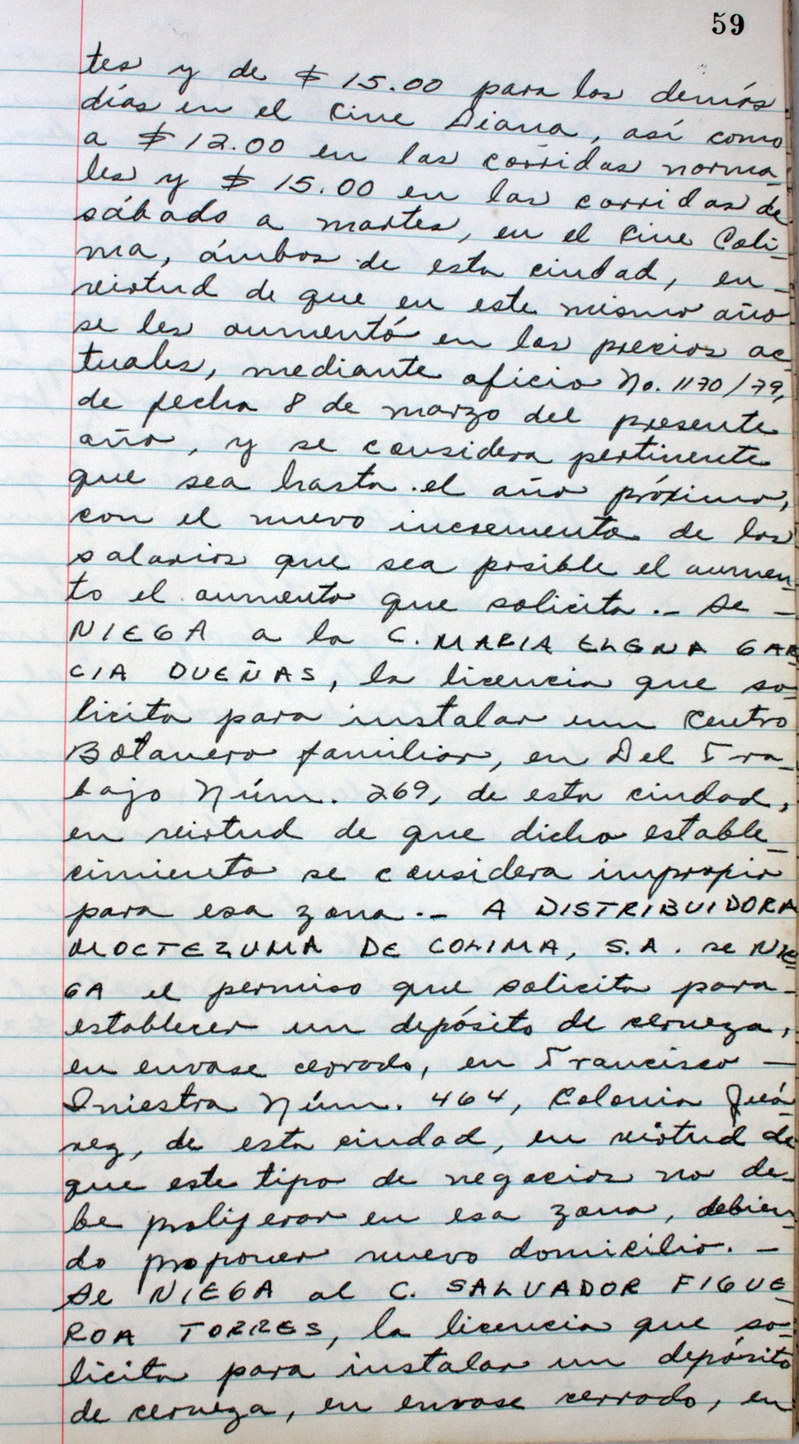 59
tes y de $ 15.00 para los demás
días en el Cine Diana, así como
a $ 12.00 en las corridas norma-
les y $ 15.00 en las corridas de
sábado a martes, en el Cine Coli-
ma, ámbos de esta ciudad, en-
virtud de que en este mismo año
se les aumentó en los precios ac-
tuales, mediante oficio No. 1170/79,
de fecha 8 de marzo del presente
año, y se considera pertinente
que sea hasta el año próximo,
con el nuevo incremento de los
salarios que sea posible el aumen-
to el aumento que solicita.- Se -
NIEGA a la C. MARIA ELENA GAR
CIA DUEÑAS, la licencia que so-
licita para instalar un Centro
Botanero familiar, en Del Tra-
bajo Núm. 269, de esta ciudad,
en virtud de que dicho estable-
cimiento se considera impropio
para esa zona.- A DISTRIBUIDORA
MOCTEZUMA DE COLIMA, S.A. se NIE-
GA el permiso que solicita para-
establecer un depósito de cerveza,
en envase cerrado, en Francisco -
Iniestra Núm. 464, Colonia Juá-
rez, de esta ciudad, en virtud de
que este tipo de negocios no de-
be proliferar en esa zona, debien-
do proponer nuevo domicilio. -
Se NIEGA al C. SALVADOR FIGUE-
ROA TORRES, la licencia que so-
licita para instalar un depósito
de cerveza, en envase cerrado, en